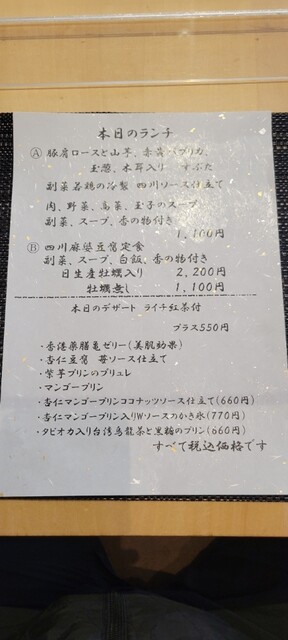 本日のランチ
Ⓐ 豚肩ロースと山芋、赤黄パプリカ、
玉葱、木耳入り すぶた
副菜若鶏の冷製 四川ソース仕立て
肉、野菜、烏菜、玉子のスープ
副菜、スープ、香の物付き
1,100円
Ⓑ 四川麻婆豆腐定食
副菜、スープ、白飯、香の物付き
日生産牡蠣入り 2,200円
牡蠣無し 1,100円
本日のデザート ライチ紅茶付
プラス550円
・香港薬膳亀ゼリー(美肌効果)
・杏仁豆腐 苺ソース仕立て
・紫芋プリンのブリュレ
・マンゴープリン
・杏仁マンゴープリンココナッツソース仕立て(660円)
・杏仁マンゴープリン入りWソースのかき氷(770円)
・タピオカ入り台湾烏龍茶と黒糖のプリン(660円)
すべて税込価格です